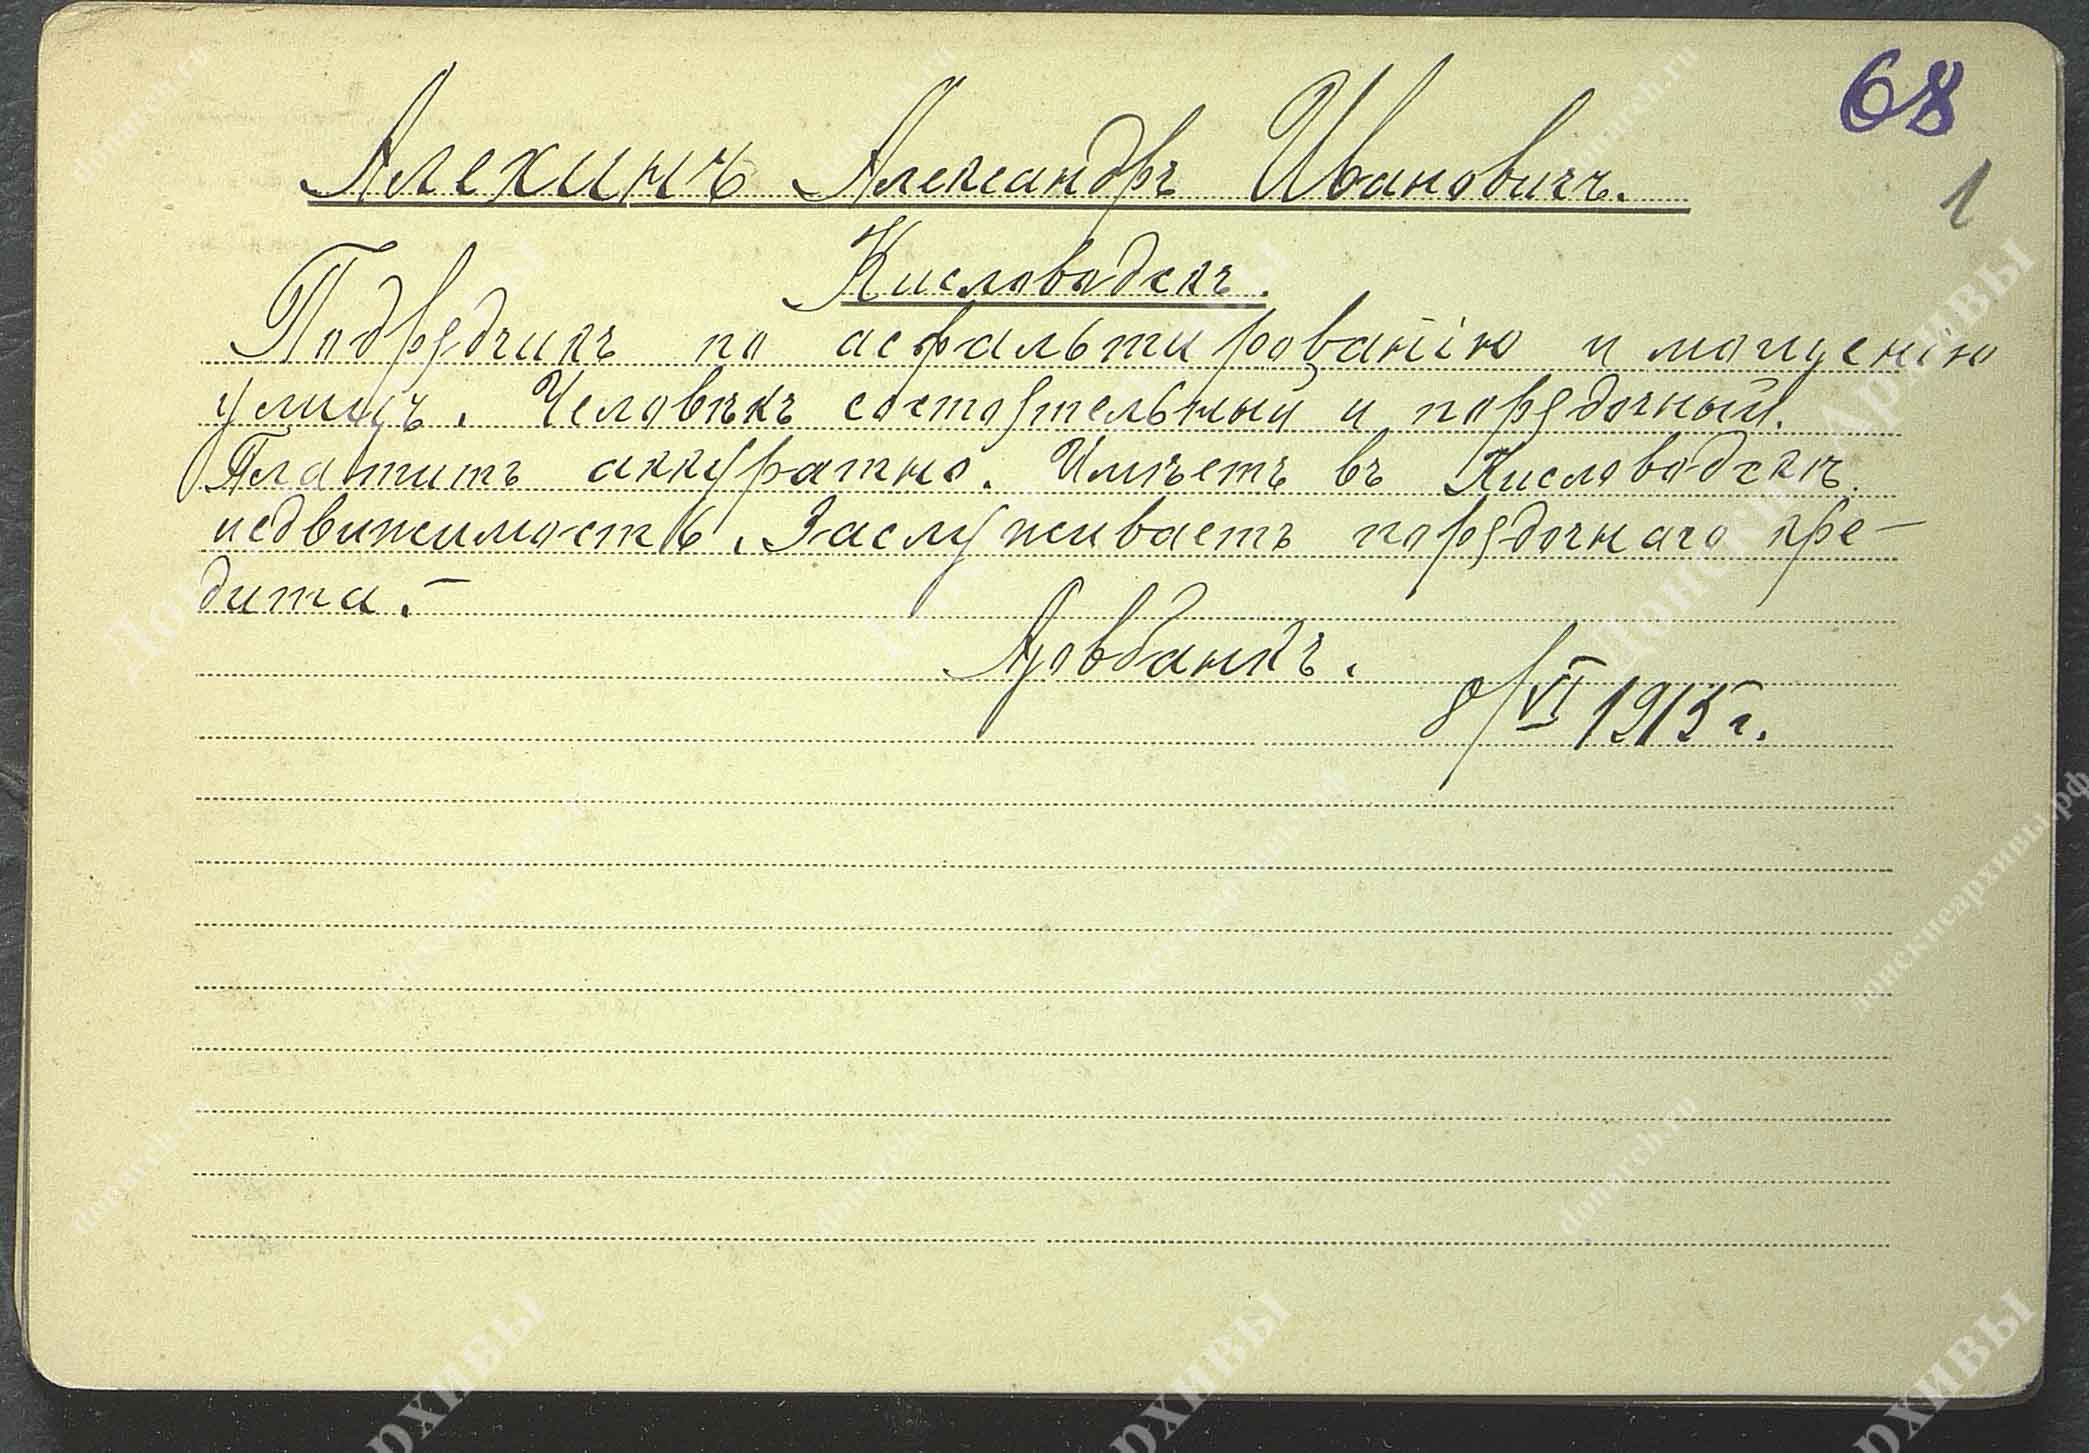 68
1
Алехинъ Александръ Ивановичъ.
Кисловодскъ.
Подрядчикъ по асфальтированію и мощенію
улицъ. Человѣкъ состоятельный и порядочный.
Платитъ аккуратно. Имѣетъ въ Кисловодскѣ
недвижимость. Заслуживаетъ порядочнаго кре-
дита.–
Азовбанкъ.
8/VI 1915 г.